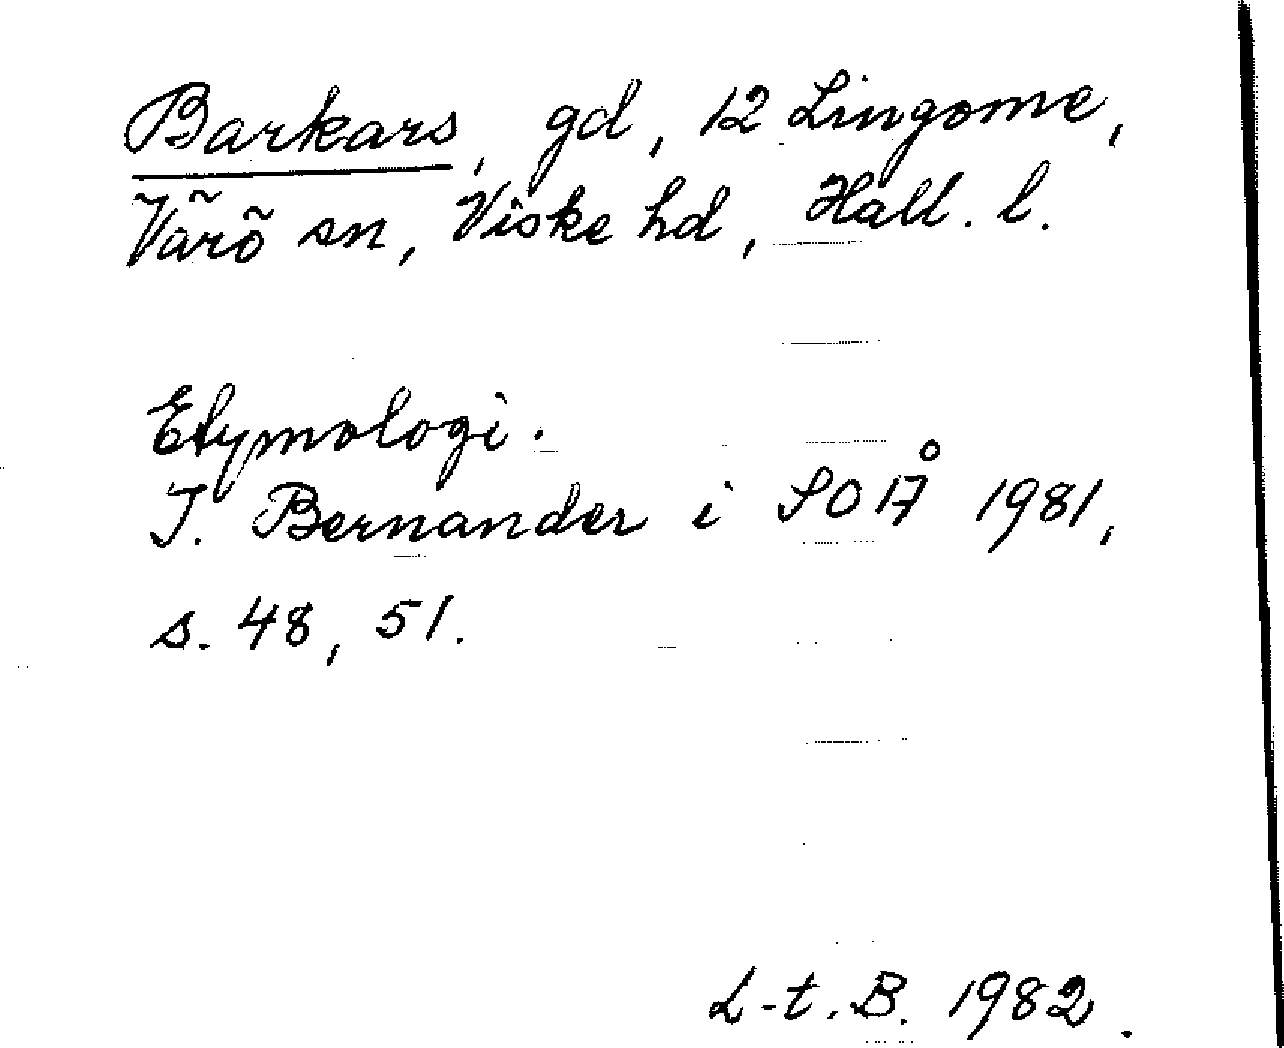 Barkars, gd, 12 Lingome,
Värö sn, Viske hd, Hall. l.
Etymologi.
I. Bernander i SOÅ 1981,
s. 48, 51.
L-t. B. 1982.